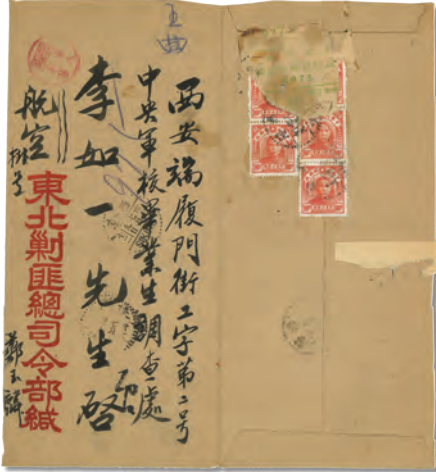 西安端履門街工字第二号
中央軍校畢業生調查處
李如一先生啓
航空
掛号
東北剿匪總司令部緘
鄭玉麟